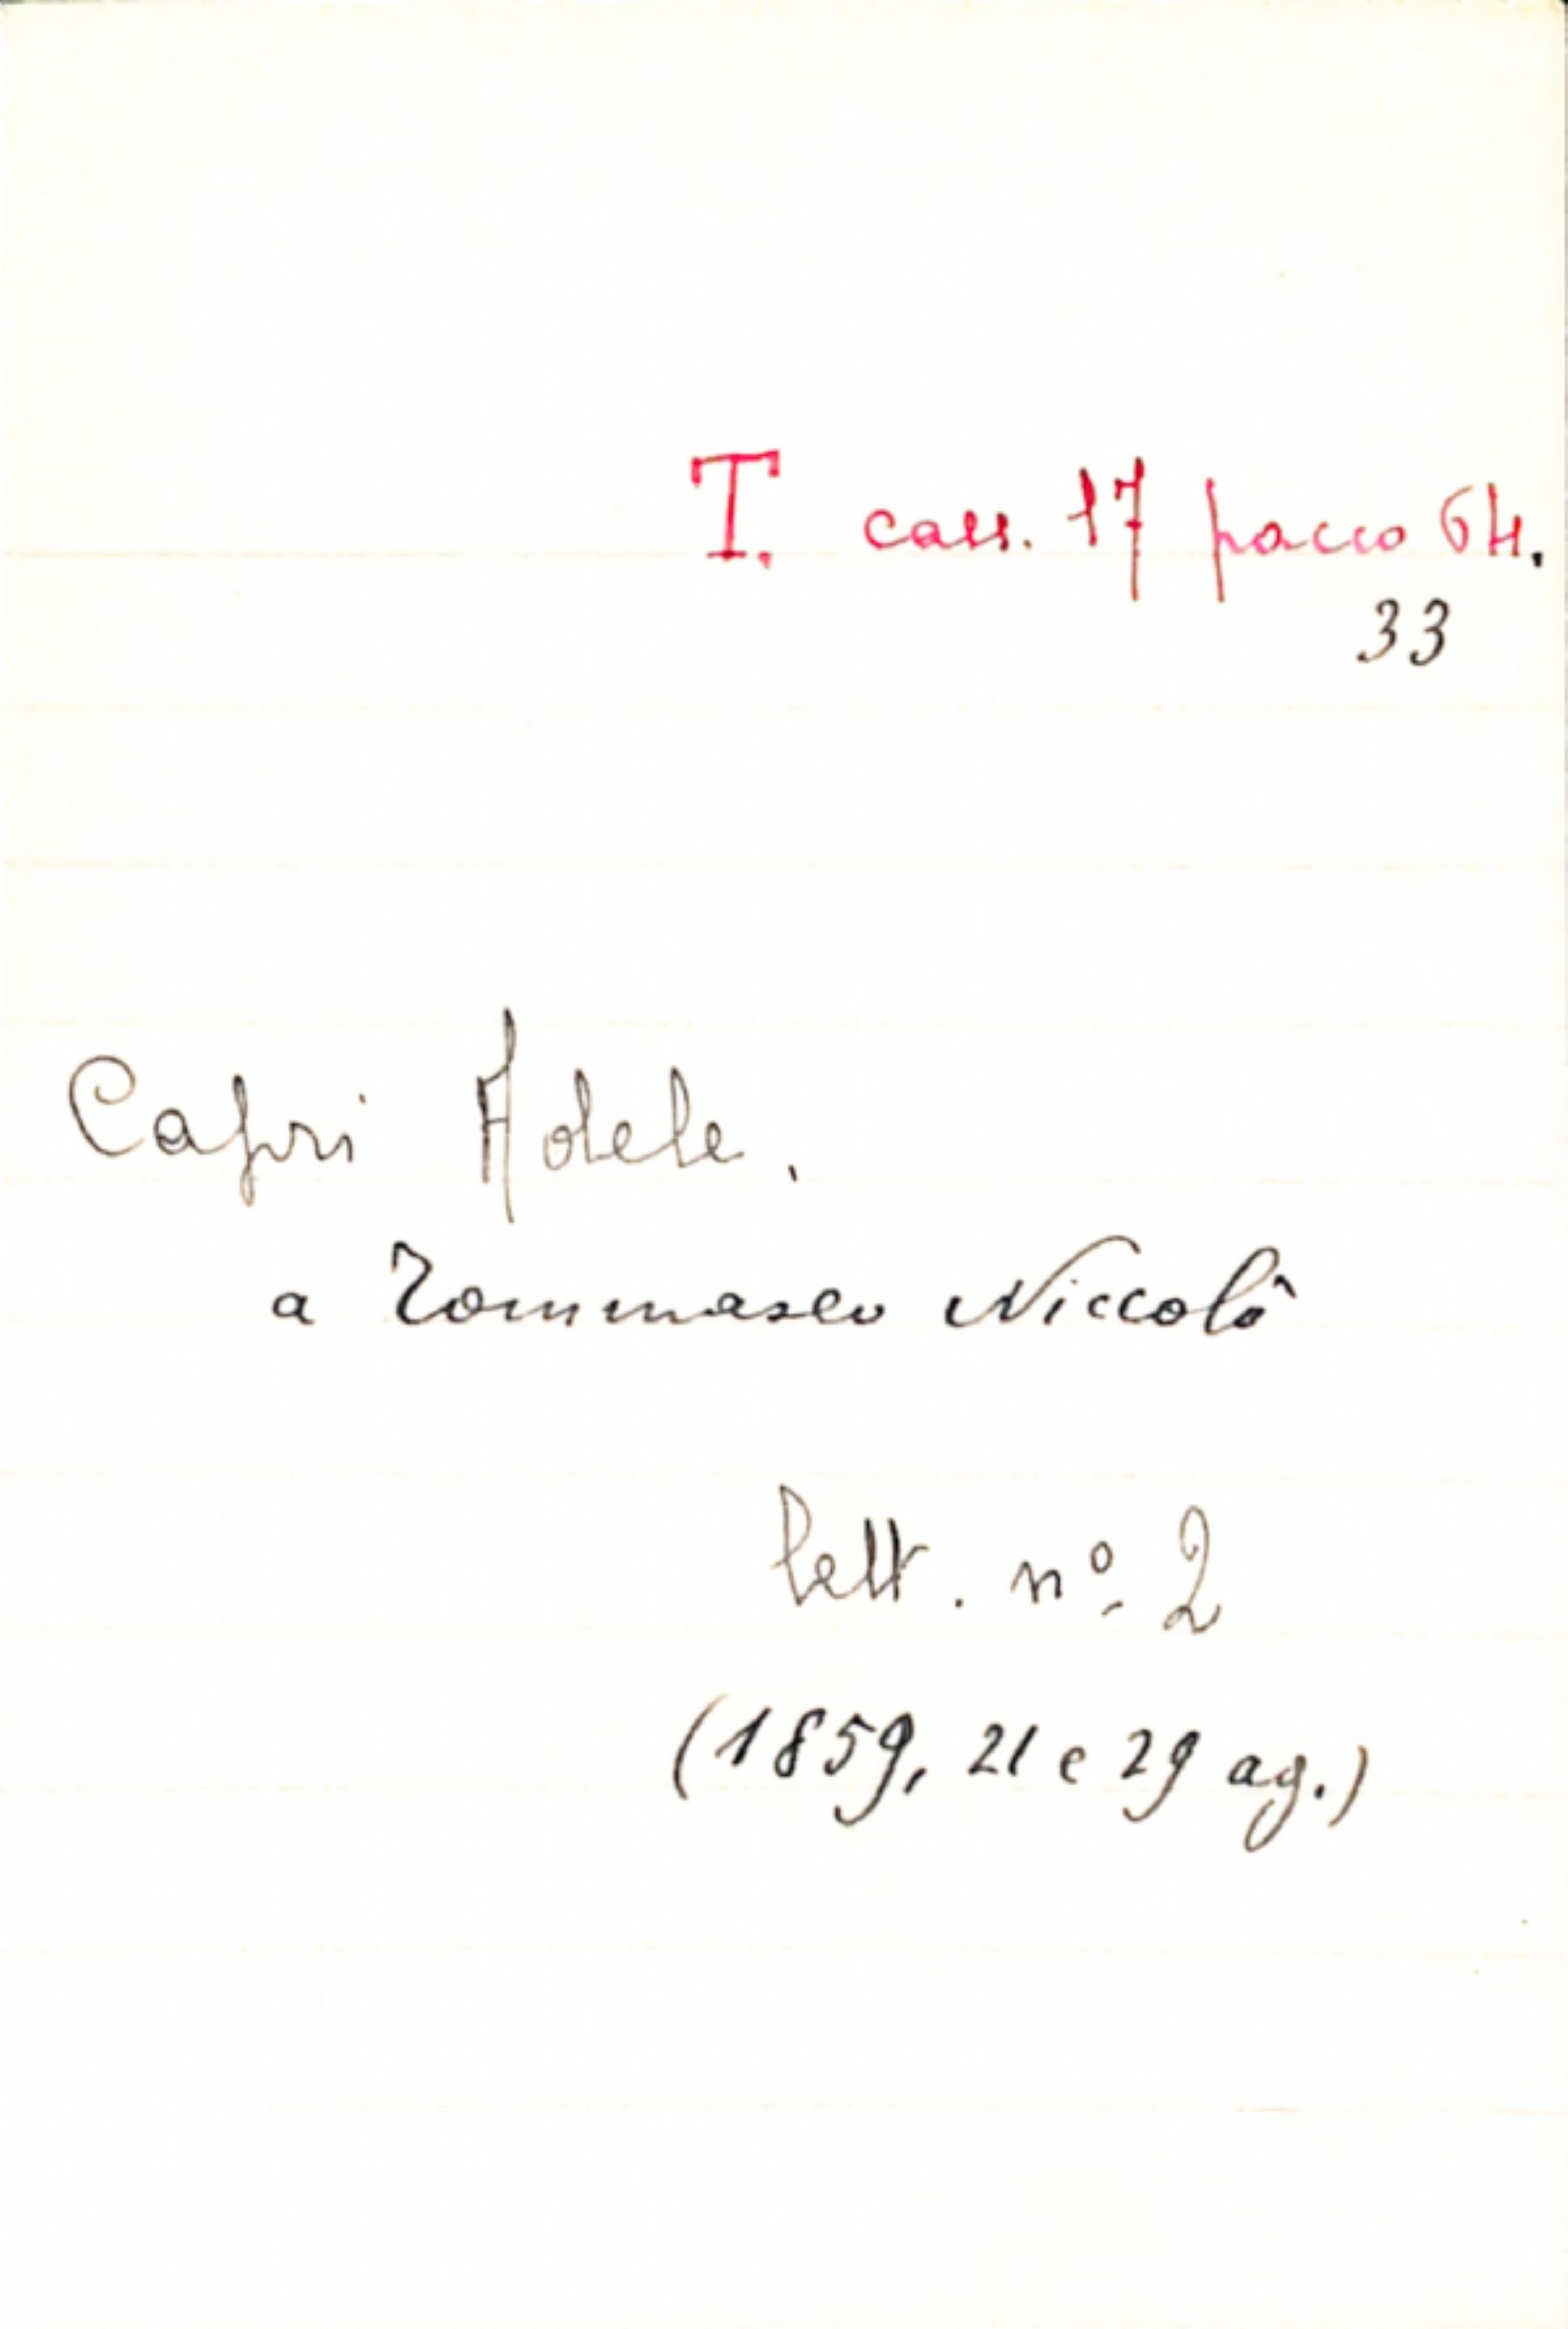 T. cass. 17 pacco 64.
33
Capri Adele.
a Tommaseo Niccolò
lett. nº 2
(1859, 21 e 29 ag.)